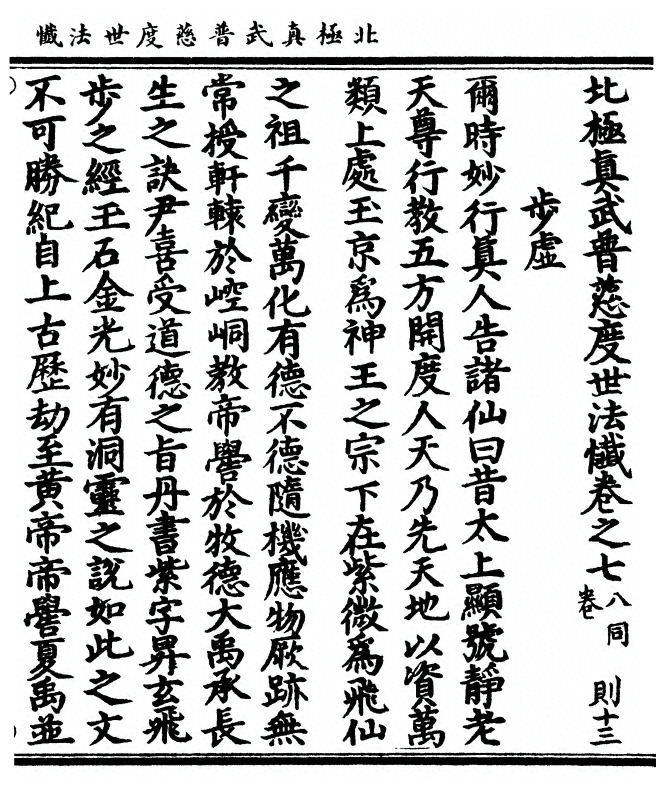 北極真武普慈度世法懺
北極真武普慈度世法懺卷之七 八同卷 則十三
步虛
爾時妙行真人告諸仙曰昔太上顯號靜老
天尊行教五方開度人天乃先天地以資萬
類上處玉京爲神王之宗下在紫微爲飛仙
之祖千變萬化有德不德隨機應物厥跡無
常授軒轅於崆峒教帝嚳於牧德大禹承長
生之訣尹喜受道德之旨丹書紫字昇玄飛
步之經玉石金光妙有洞靈之說如此之文
不可勝紀自上古歷劫至黃帝帝嚳夏禹並